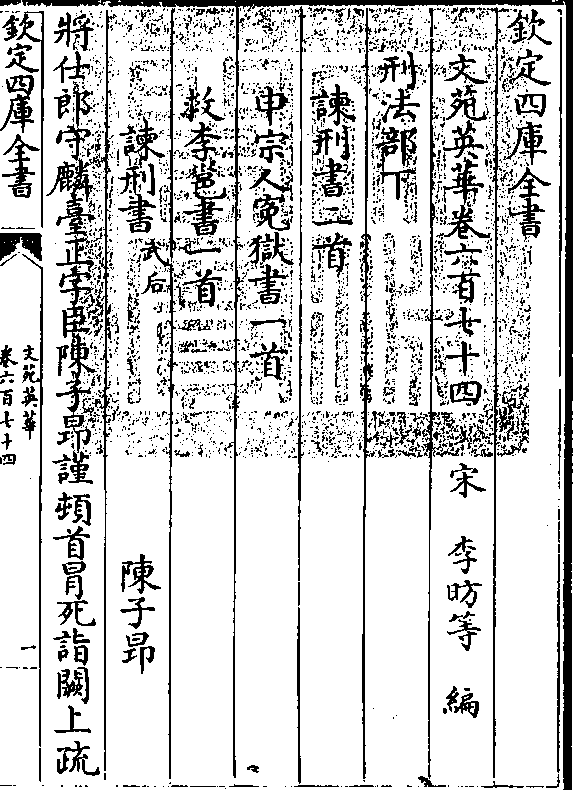 欽定四庫全書
文苑英華卷六百七十四
宋 李昉等 編
刑法部下
諫刑書二首
申宗人冤獄書一首
救李邕書一首
諫刑書武后 陳子昂
將仕郎守麟臺正字臣陳子昂謹頓首冒死詣闕上疏
欽定四庫全書
文苑英華
卷六百七十四
一